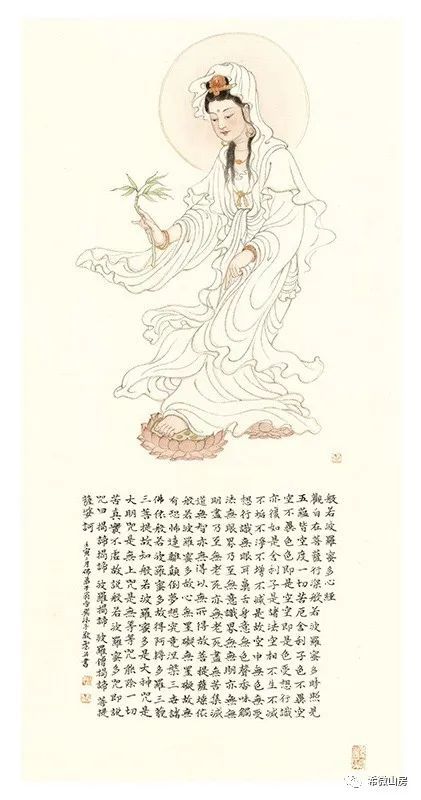 般若波羅蜜多心經
觀自在菩薩行深般若波羅蜜多時照見
五蘊皆空度一切苦厄舍利子色不異空
空不異色色即是空空即是色受想行識
亦復如是舍利子是諸法空相不生不滅
不垢不淨不增不減是故空中無色無受
想行識無眼耳鼻舌身意無色聲香味觸
法無眼界乃至無意識界無無明亦無無
明盡乃至無老死亦無老死盡無苦集滅
道無智亦無得以無所得故菩提薩埵依
般若波羅蜜多故心無罣礙無罣礙故無
有恐怖遠離顛倒夢想究竟涅槃三世諸
佛依般若波羅蜜多故得阿耨多羅三藐
三菩提故知般若波羅蜜多是大神咒是
大明咒是無上咒是無等等咒能除一切
苦真實不虛故說般若波羅蜜多咒即說
咒曰 揭諦揭諦 波羅揭諦 波羅僧揭諦 菩提
薩婆訶 壬寅 月佛弟子
希微山房